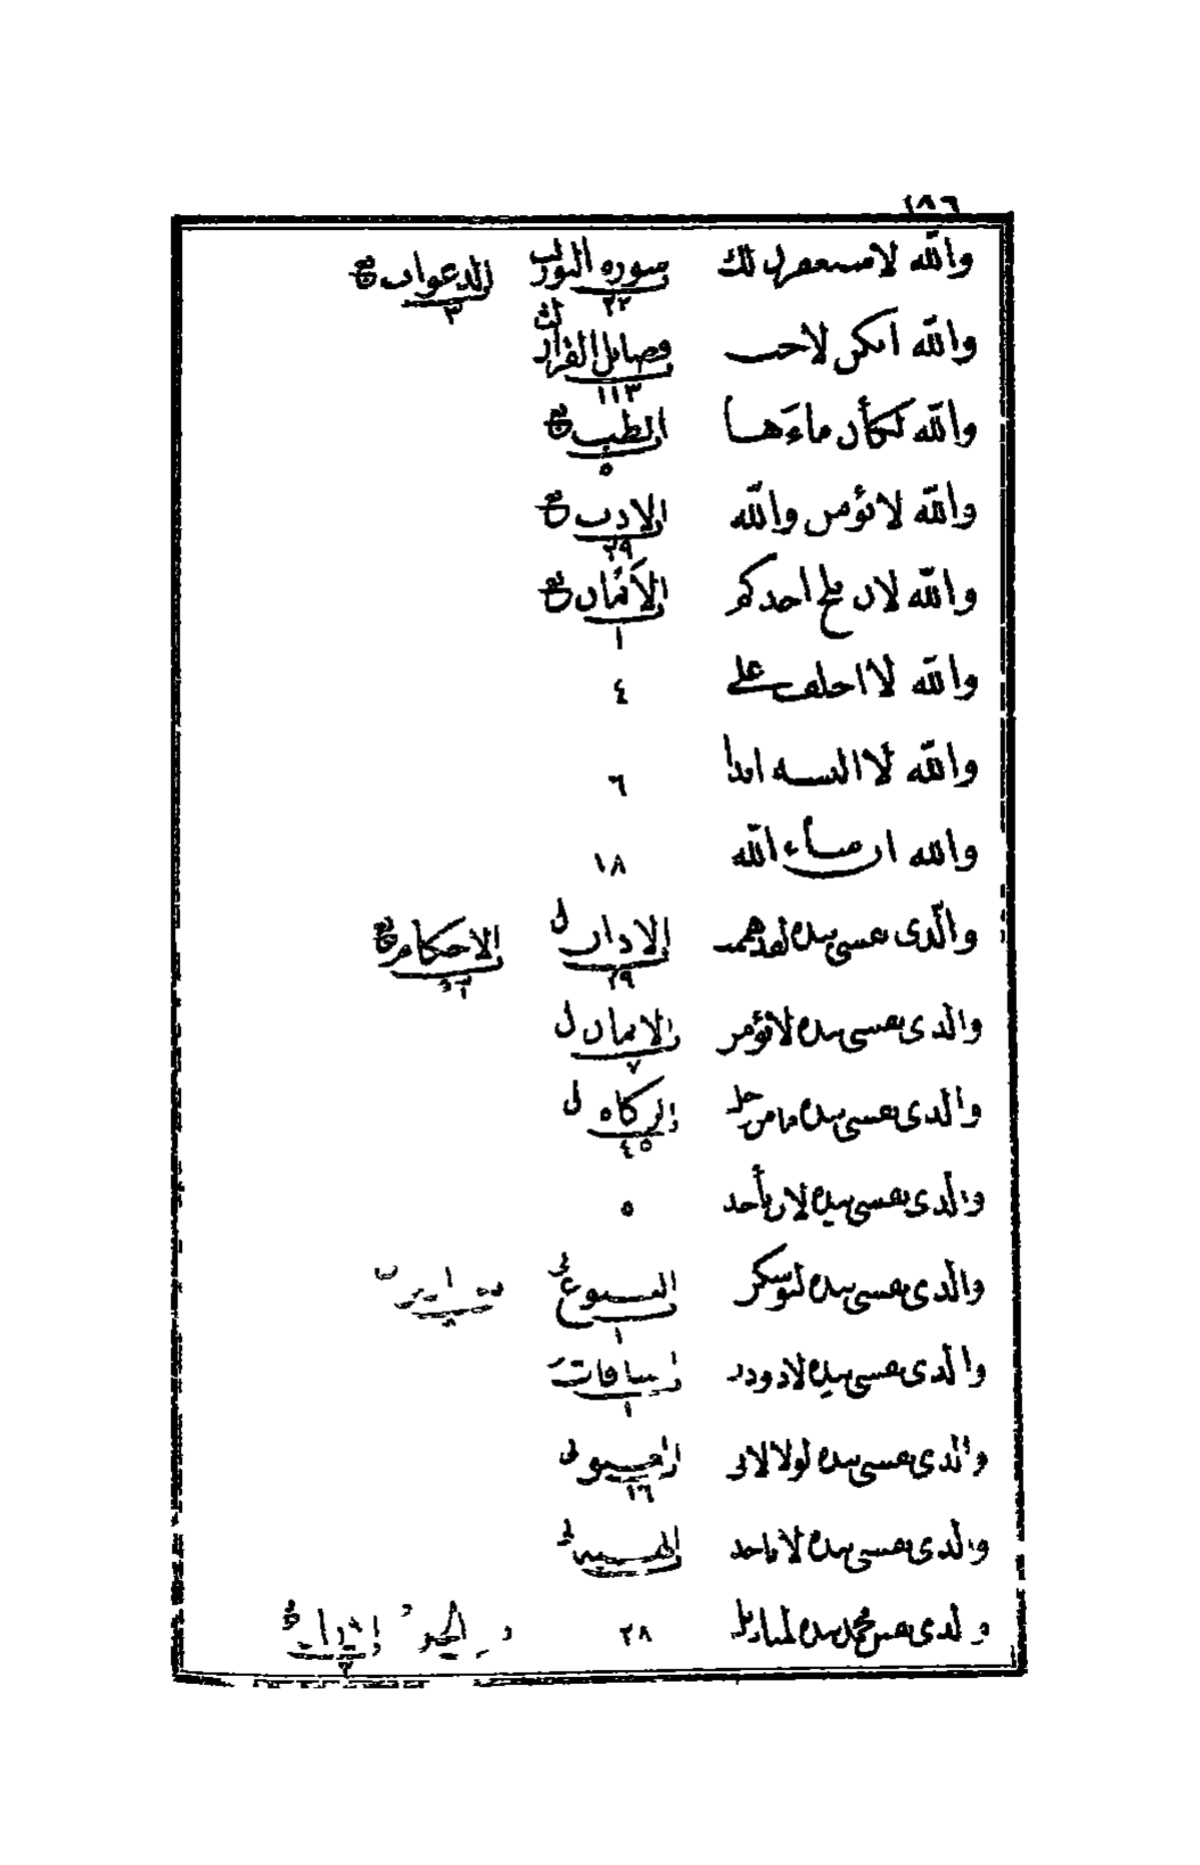 ١٨٦
والله لاستغفر لك سوره النور ٢٢ الدعوات ٣
والله انكن لاحب فضائل القرآن ١١٣
والله لكأن ماءها الطب ٥
والله لا يؤمن والله الادب ٢٩
والله لان يلج احدكم الأيمان ١
والله لا احلف على ٤
والله لا البسه ابدا ٦
والله ان شاء الله ١٨
والذى نفسى بيده لقد هممت الاذان ل ٢٩ الاحكام
والذى نفسى بيده لا يؤمن الايمان ل ٧
والذى نفسى بيده ما من رجل الزكاه ل ٤٥
والذى نفسى بيده لان يأحد ٥
والذى نفسى بيده ليوشكن البيوع ١
والذى نفسى بيده لاذودن المساقات ١
والذى نفسى بيده لولا ان ١٦
والذى نفسى بيده لا ياحد الهبه
والذى نفس محمد بيده لمناديل ٢٨